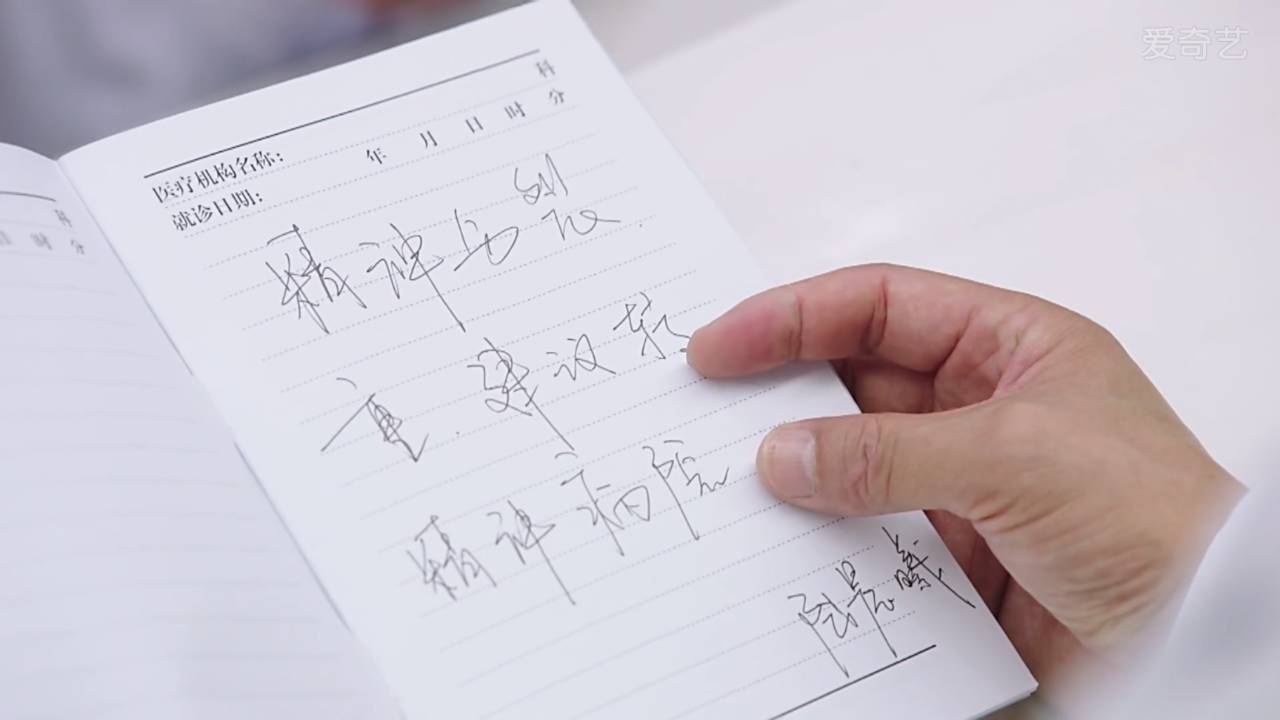 爱奇艺
科
医疗机构名称: 年 月 日 时 分
就诊日期:
科
时 分
精神
重.建议转
精神病院